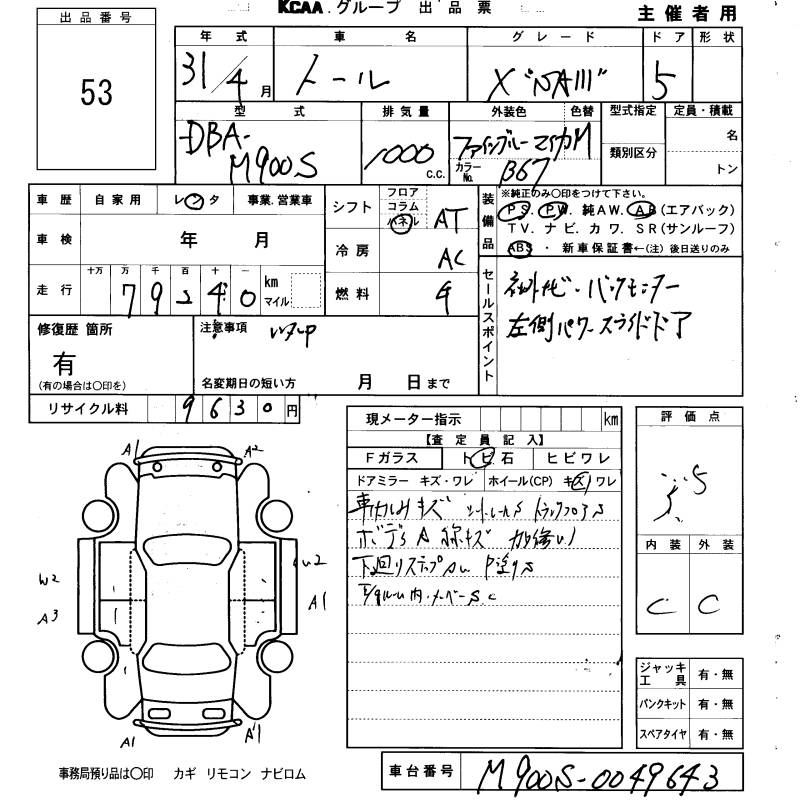 KCAA グループ 出品票
主催者用
出品番号
53
年式 車名 グレード ドア 形状
31/4月 トール X"SAIII" 5
型式 排気量 外装色 色替 型式指定 定員・積載
DBA-M900S 1000 c.c. ファインブルーマイカM
カラーNo. B67
類別区分
名
トン
車歴 自家用 レンタ 事業.営業車
車検 年 月
走行 十万 万 千 百 十 一
79240 km マイル
シフト フロア コラム パネル AT
冷房 AC
燃料
装備品
※純正のみ〇印をつけて下さい。
PS. PW. 純AW. AB(エアバック)
TV. ナビ. カワ. SR(サンルーフ)
ABS・新車保証書←(注)後日送りのみ
セールスポイント
社外ナビ・バックモニター
左側パワースライドドア
修復歴 箇所
有
(有の場合は〇印を)
注意事項
名変期日の短い方 月 日まで
リサイクル料 9630円
現メーター指示 km
【査定員記入】
Fガラス トビ石 ヒビワレ
ドアミラー キズ・ワレ ホイール(CP) キズ ワレ
車内しみキズ シートレールS トランクフロアS
ボディA 線キズ
下廻りステップAU P塗りS
評価点
内装 外装
C C
A1 A2
W2
A3 A1
A1 A1
ジャッキ工具 有・無
パンクキット 有・無
スペアタイヤ 有・無
事務局預り品は〇印 カギ リモコン ナビロム
車台番号 M900S-0049643